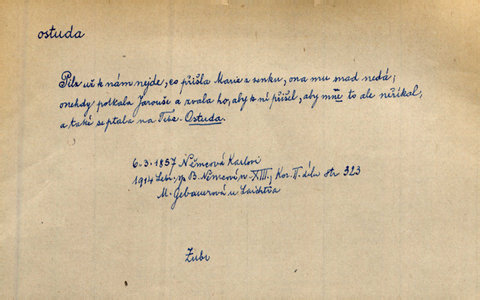 ostuda
Pilz už k nám nejde, co přišla Marie z venku, ona mu snad nedá,
onehdy potkala Jarouše a zvala ho, aby k ní přišel, aby mně to ale neříkal,
a také se ptala na Tebe. Ostuda.
6.-3.-1857 Němcová Karlovi
1914 Sebr. sp. B. Němcové XIII, Kor. II. dílu str 323
M. Gebauerová u Laichtra
Zubr